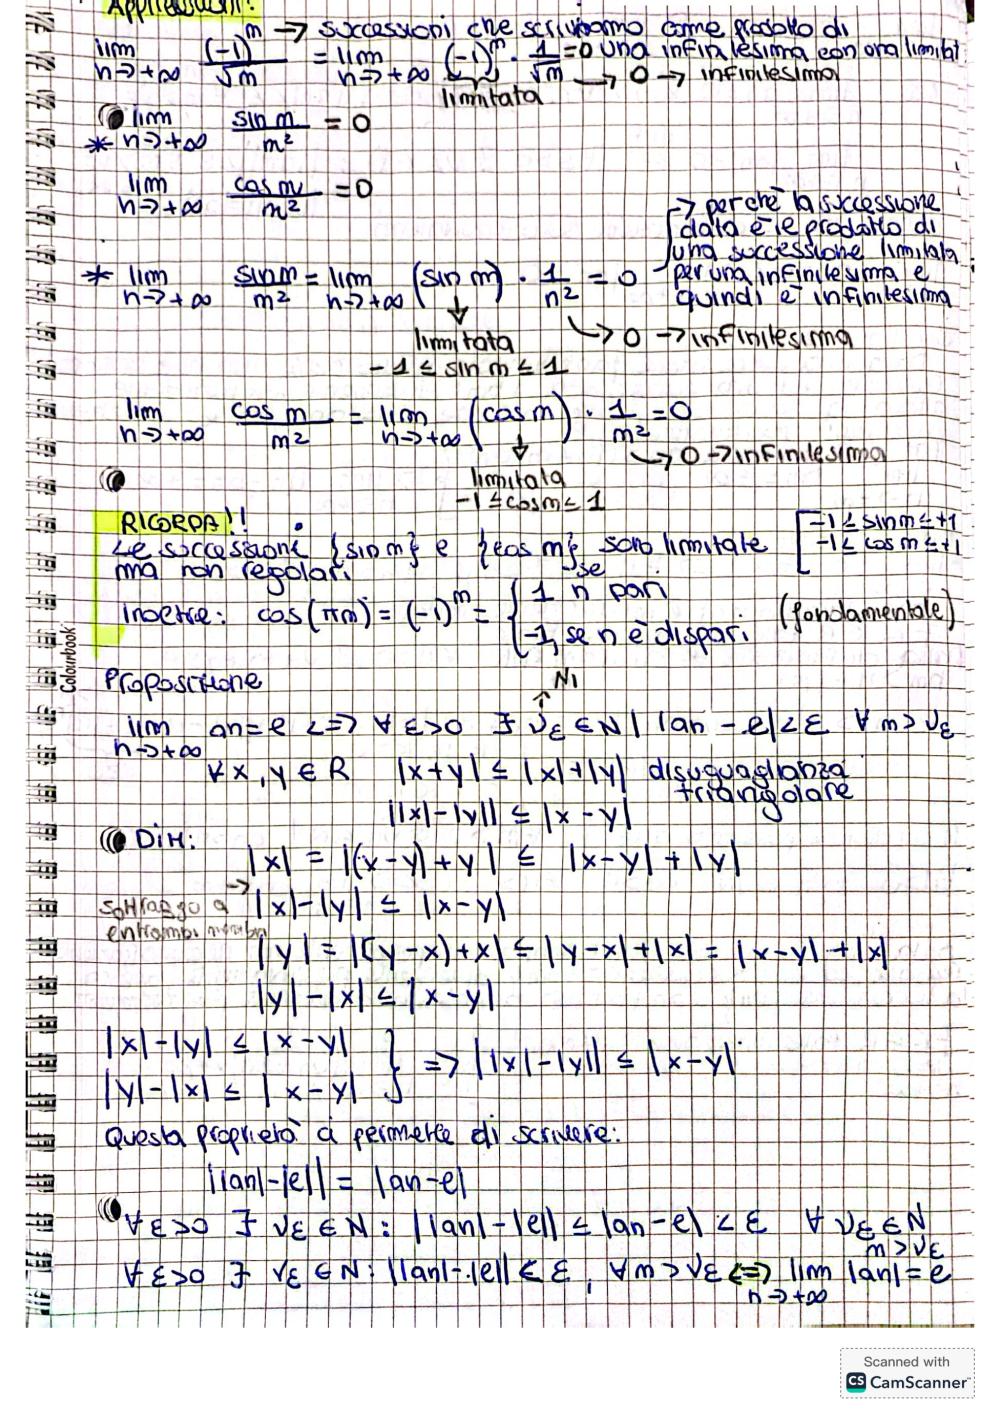 Applicazioni:
lim n→+∞ (-1)^m/√m = lim n→+∞ (-1)^m · 1/√m = 0 → successioni che scriviamo come prodotto di
una infinitesima con una limitata
limitata → 0 → infinitesima
* lim n→+∞ sin m/m² = 0
lim n→+∞ cos m/m² = 0
* lim n→+∞ sin m/m² = lim n→+∞ (sin m) · 1/n² = 0
→ perchè la successione
data è il prodotto di
una successione limitata
per una infinitesima e
quindi è infinitesima
limitata → 0 → infinitesima
-1 ≤ sin m ≤ 1
lim n→+∞ cos m/m² = lim n→+∞ (cos m) · 1/m² = 0
→ 0 → infinitesima
limitata
-1 ≤ cos m ≤ 1
RICORDA!!
Le successioni {sin m} e {cos m} sono limitate
ma non regolari
[-1 ≤ sin m ≤ +1
-1 ≤ cos m ≤ +1
Inoltre: cos(πm) = (-1)^m = { 1 se n pari
-1, se n è dispari (fondamentale)
Colourbook
Proposizione
N1
lim n→+∞ an = e <=> ∀ ε>0 ∃ νε ∈ N | |an - e| < ε ∀ m > νε
∀ x, y ∈ R |x+y| ≤ |x|+|y| disuguaglianza
triangolare
||x|-|y|| ≤ |x-y|
DIM:
|x| = |(x-y)+y| ≤ |x-y|+|y|
sottraggo a
entrambi i membri
→ |x|-|y| ≤ |x-y|
|y| = |(y-x)+x| ≤ |y-x|+|x| = |x-y|+|x|
|y|-|x| ≤ |x-y|
|x|-|y| ≤ |x-y|
|y|-|x| ≤ |x-y| } => ||x|-|y|| ≤ |x-y|
Questa proprietà ci permette di scrivere:
||an|-|e|| = |an-e|
∀ ε>0 ∃ νε ∈ N : ||an|-|e|| ≤ |an-e| < ε ∀ νε ∈ N
m > νε
∀ ε>0 ∃ νε ∈ N : ||an|-|e|| < ε, ∀ m > νε <=> lim n→+∞ |an| = e
Scanned with
CS CamScanner